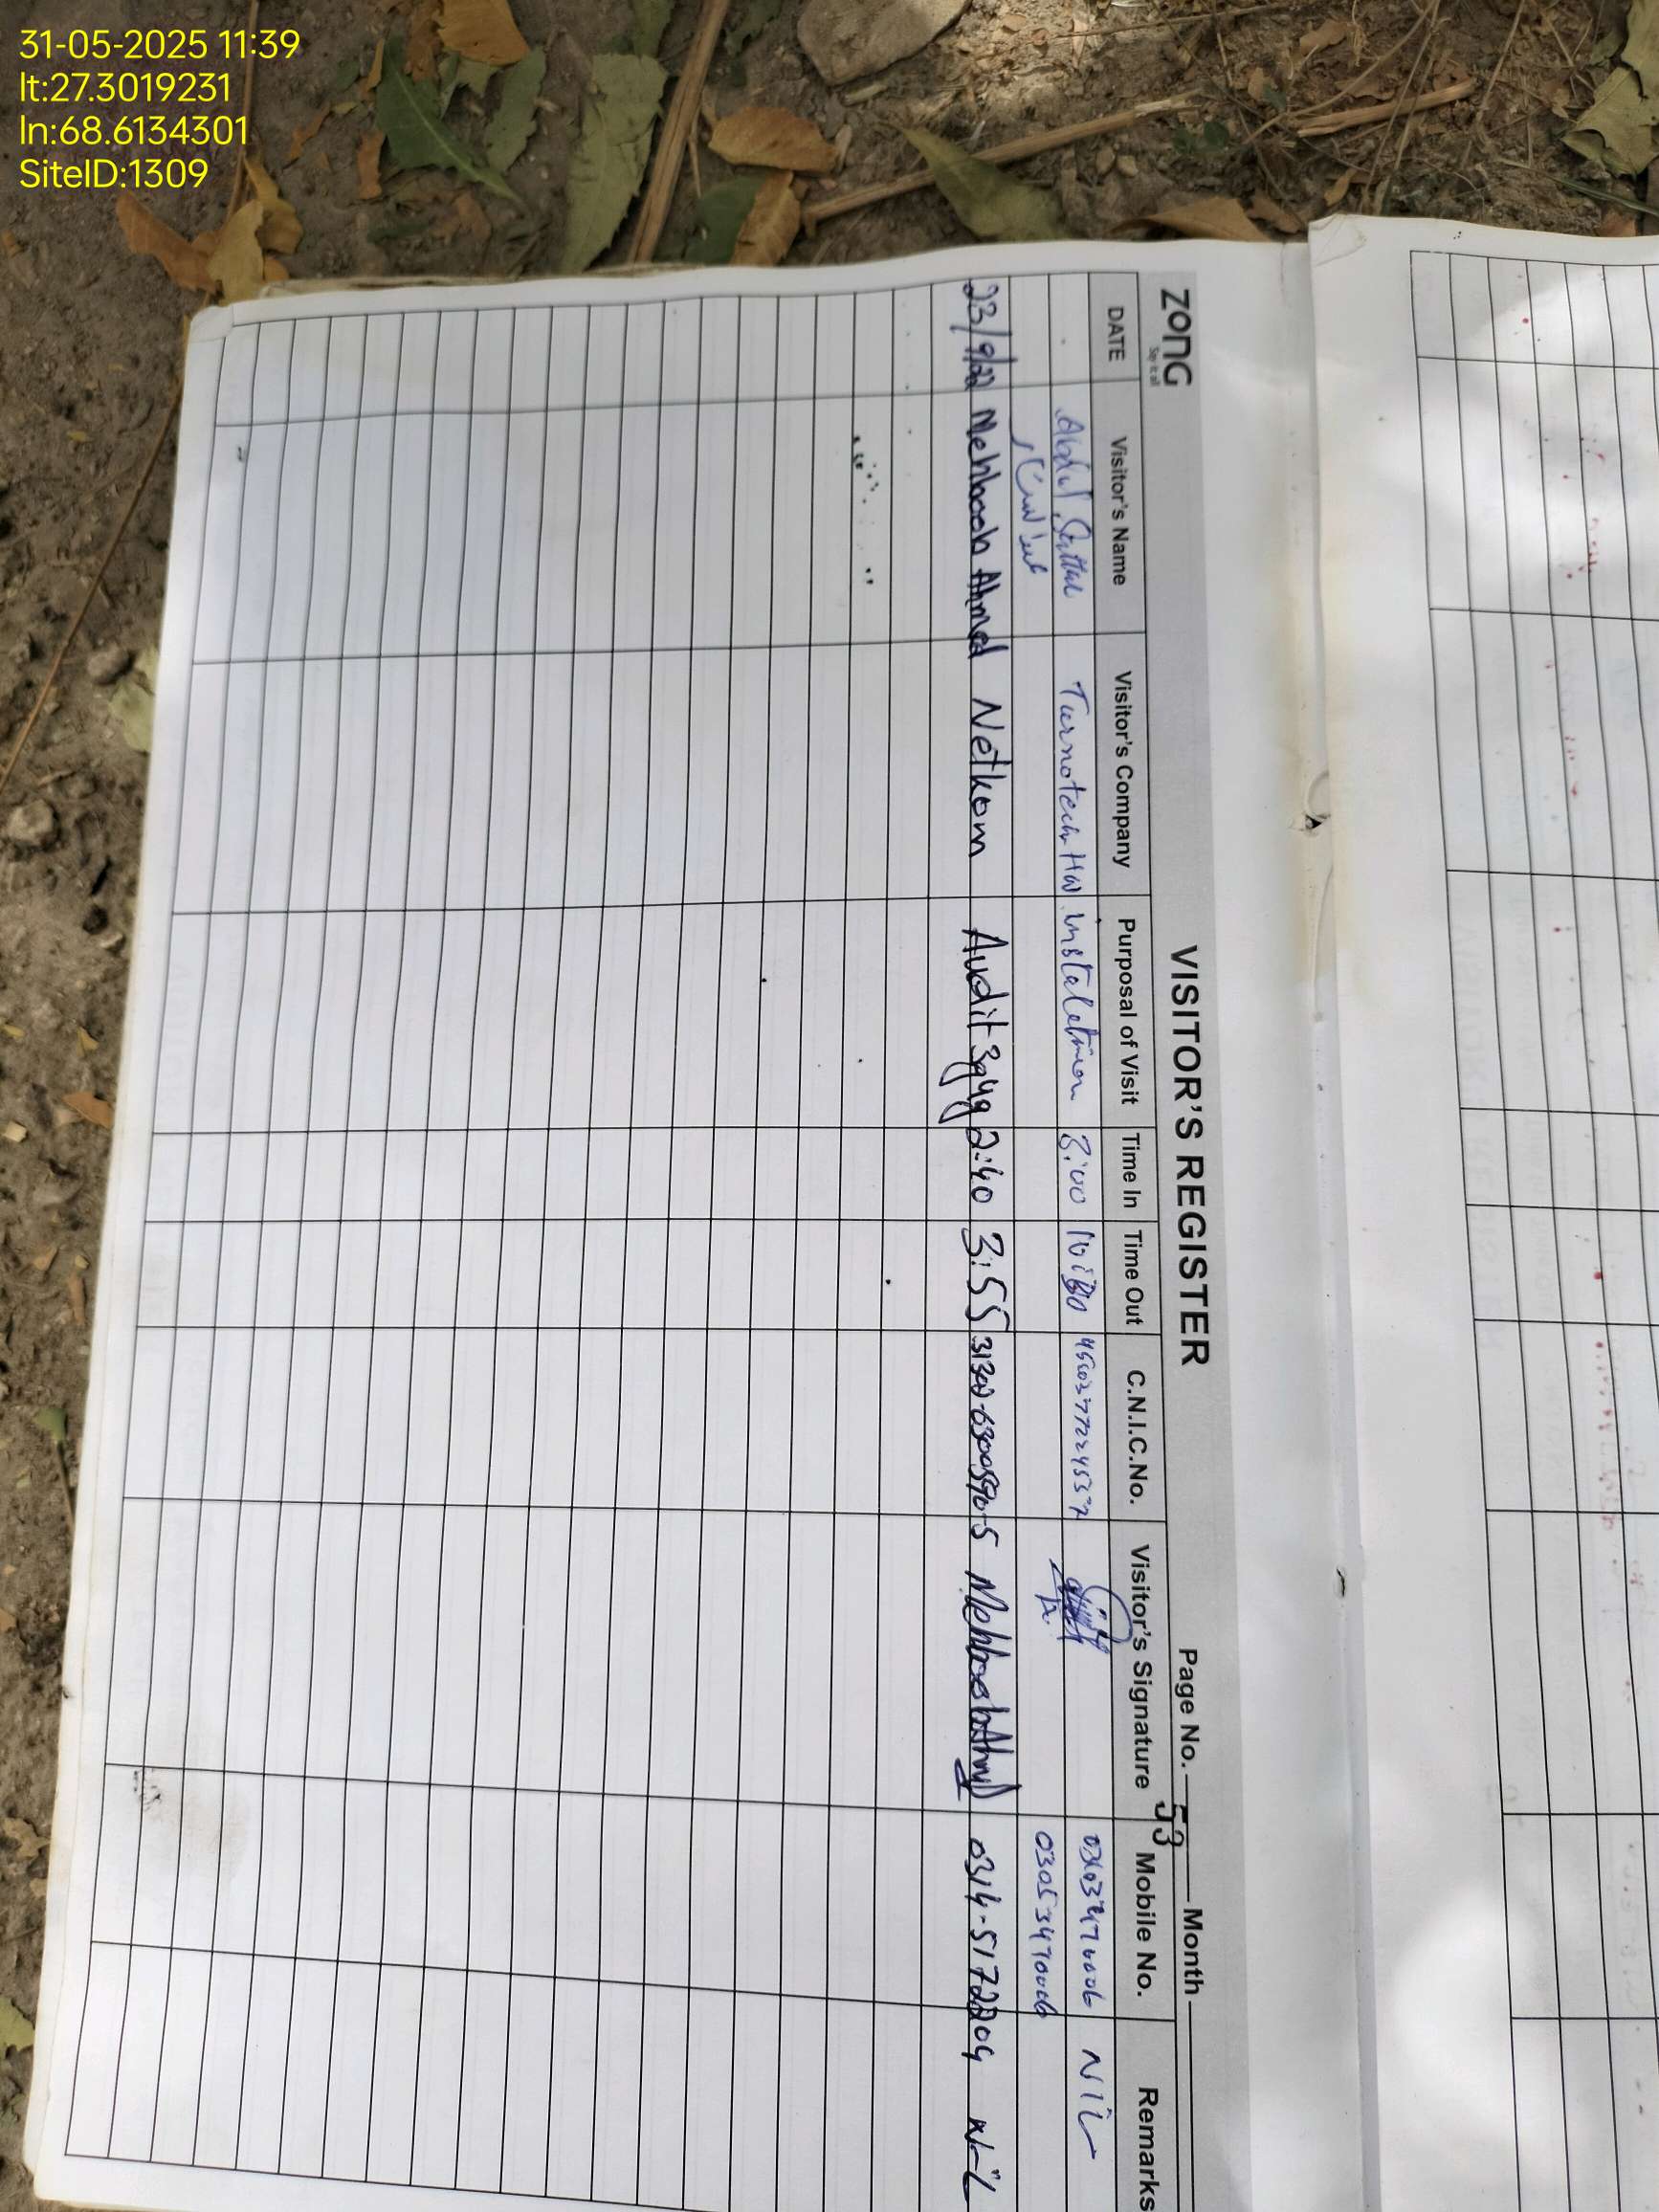 31-05-2025 11:39
lt:27.3019231
ln:68.6134301
SiteID:1309
zong
Say it all
VISITOR'S REGISTER
Page No. 53 Month
DATE Visitor's Name Visitor's Company Purposal of Visit Time In Time Out C.N.I.C.No. Visitor's Signature Mobile No. Remarks
Abdul Sattar Turnotech HW instalation 3:00 NIL
03053470006
23/9/22 Mehboob Ahmed Netkom Audit 3g4g 2:40 3:55 Mehboob Ahmd